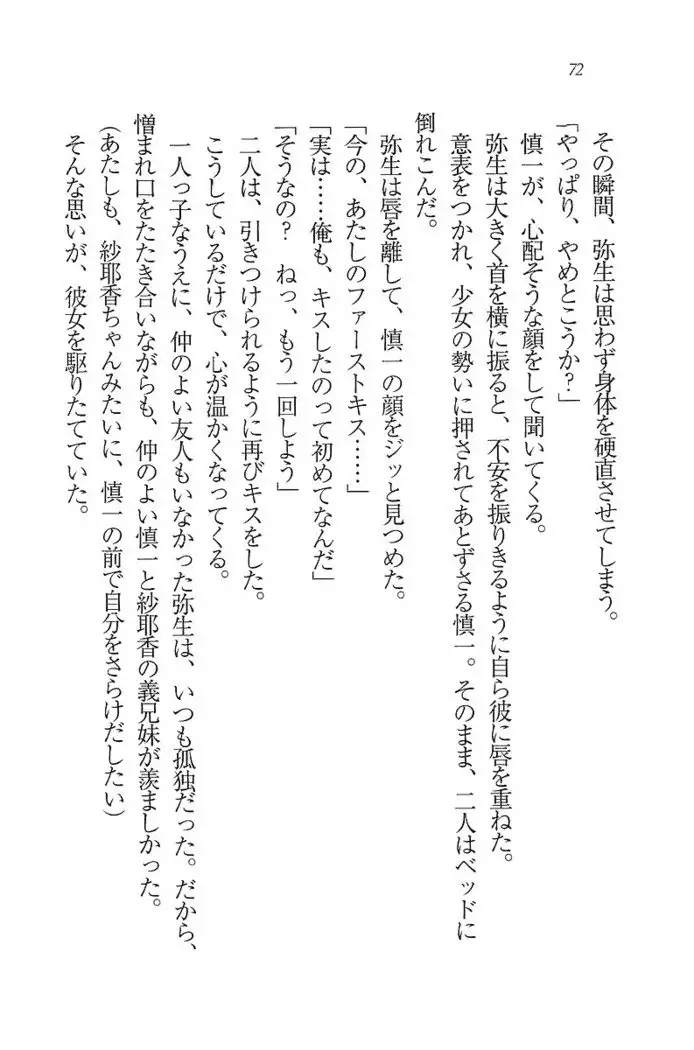 72
その瞬間、弥生は思わず身体を硬直させてしまう。
「やっぱり、やめとこうか?」
慎一が、心配そうな顔をして聞いてくる。
弥生は大きく首を横に振ると、不安を振りきるように自ら彼に唇を重ねた。
意表をつかれ、少女の勢いに押されてあとずさる慎一。そのまま、二人はベッドに
倒れこんだ。
弥生は唇を離して、慎一の顔をジッと見つめた。
「今の、あたしのファーストキス……」
「実は……俺も、キスしたのって初めてなんだ」
「そうなの? ねっ、もう一回しよう」
二人は、引きつけられるように再びキスをした。
こうしているだけで、心が温かくなってくる。
一人っ子なうえに、仲のよい友人もいなかった弥生は、いつも孤独だった。だから、
憎まれ口をたたき合いながらも、仲のよい慎一と紗耶香の義兄妹が羨ましかった。
(あたしも、紗耶香ちゃんみたいに、慎一の前で自分をさらけだしたい)
そんな思いが、彼女を駆りたてていた。